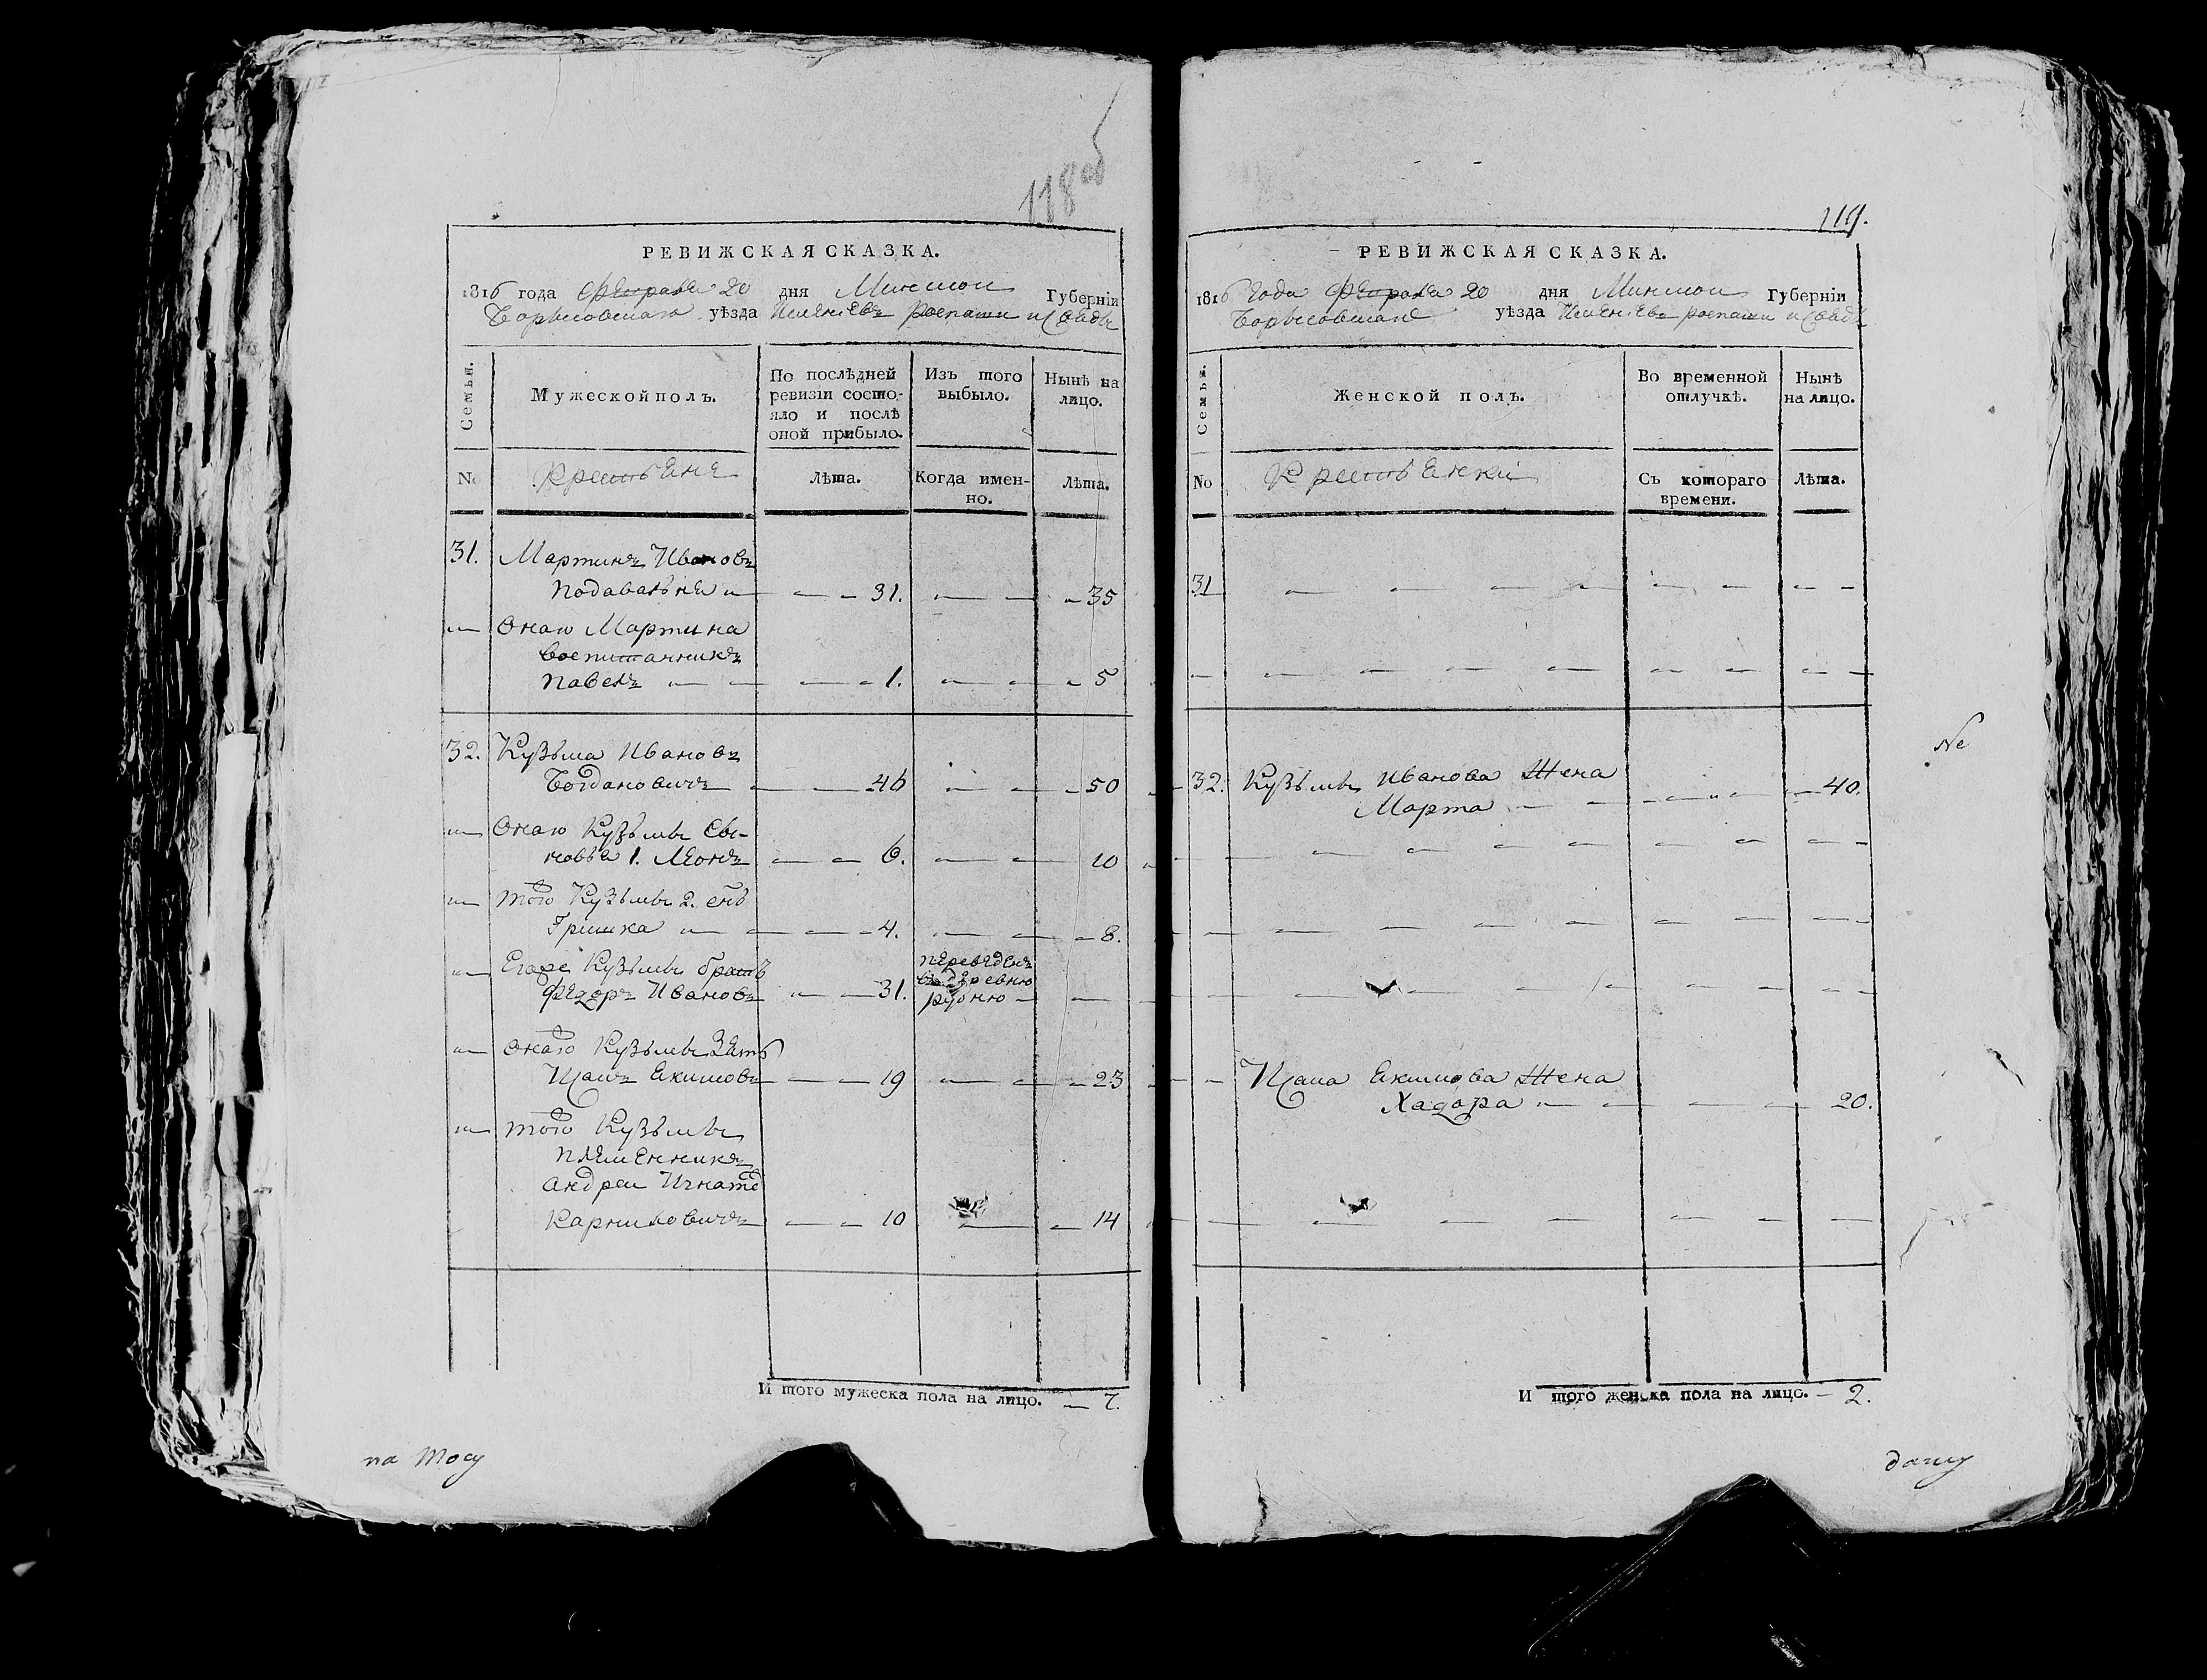 118 об
РЕВИЖСКАЯ СКАЗКА.
1816 года Февраля 20 дня Минской Губерніи
Борысовскаго уѣзда
Семьи.
Мужеской полъ.
По послѣдней ревизіи состояло и послѣ оной прибыло.
Изъ того выбыло.
Нынѣ на лицо.
No
Крестьяне
Лѣта.
Когда именно.
Лѣта.
31. Мартинъ Ивановъ
Подавальня — — 31. — — 35
— Онаго Мартина
воспитанникъ
Павелъ — — — 1. — — 5
32. Кузьма Ивановъ
Богдановичъ — — 46 — — 50
— Онаго Кузьмы Сы-
новья 1. Леонъ — — 6. — — 10
— того Кузьмы 2. снъ
Гришка — — — 4. — — 8.
— Егоже Кузьмы братъ
Федоръ Ивановъ — — 31. переведенъ въ деревню рудню — —
— Онаго Кузьмы Зять
Исакъ Екимовъ — — 19 — — 23
— того Кузьмы
племенникъ
Андрей Игнатов
Карниловичъ — — 10 — — 14
И того мужеска пола на лицо. — 7.
на Тосу
119.
РЕВИЖСКАЯ СКАЗКА.
1816 года Февраля 20 дня Минской Губерніи
Борысовскаго уѣзда
Семьи.
Женской полъ.
Во временной отлучкѣ.
Нынѣ на лицо.
No
Крестьянки
Съ котораго времени.
Лѣта.
31 — — — — — — — —
32. Кузьмы Иванова Жена
Марта — — — — — 40.
Исака Екимова Жена
Хадора — — — — 20.
И того женска пола на лицо. — 2.
Ne